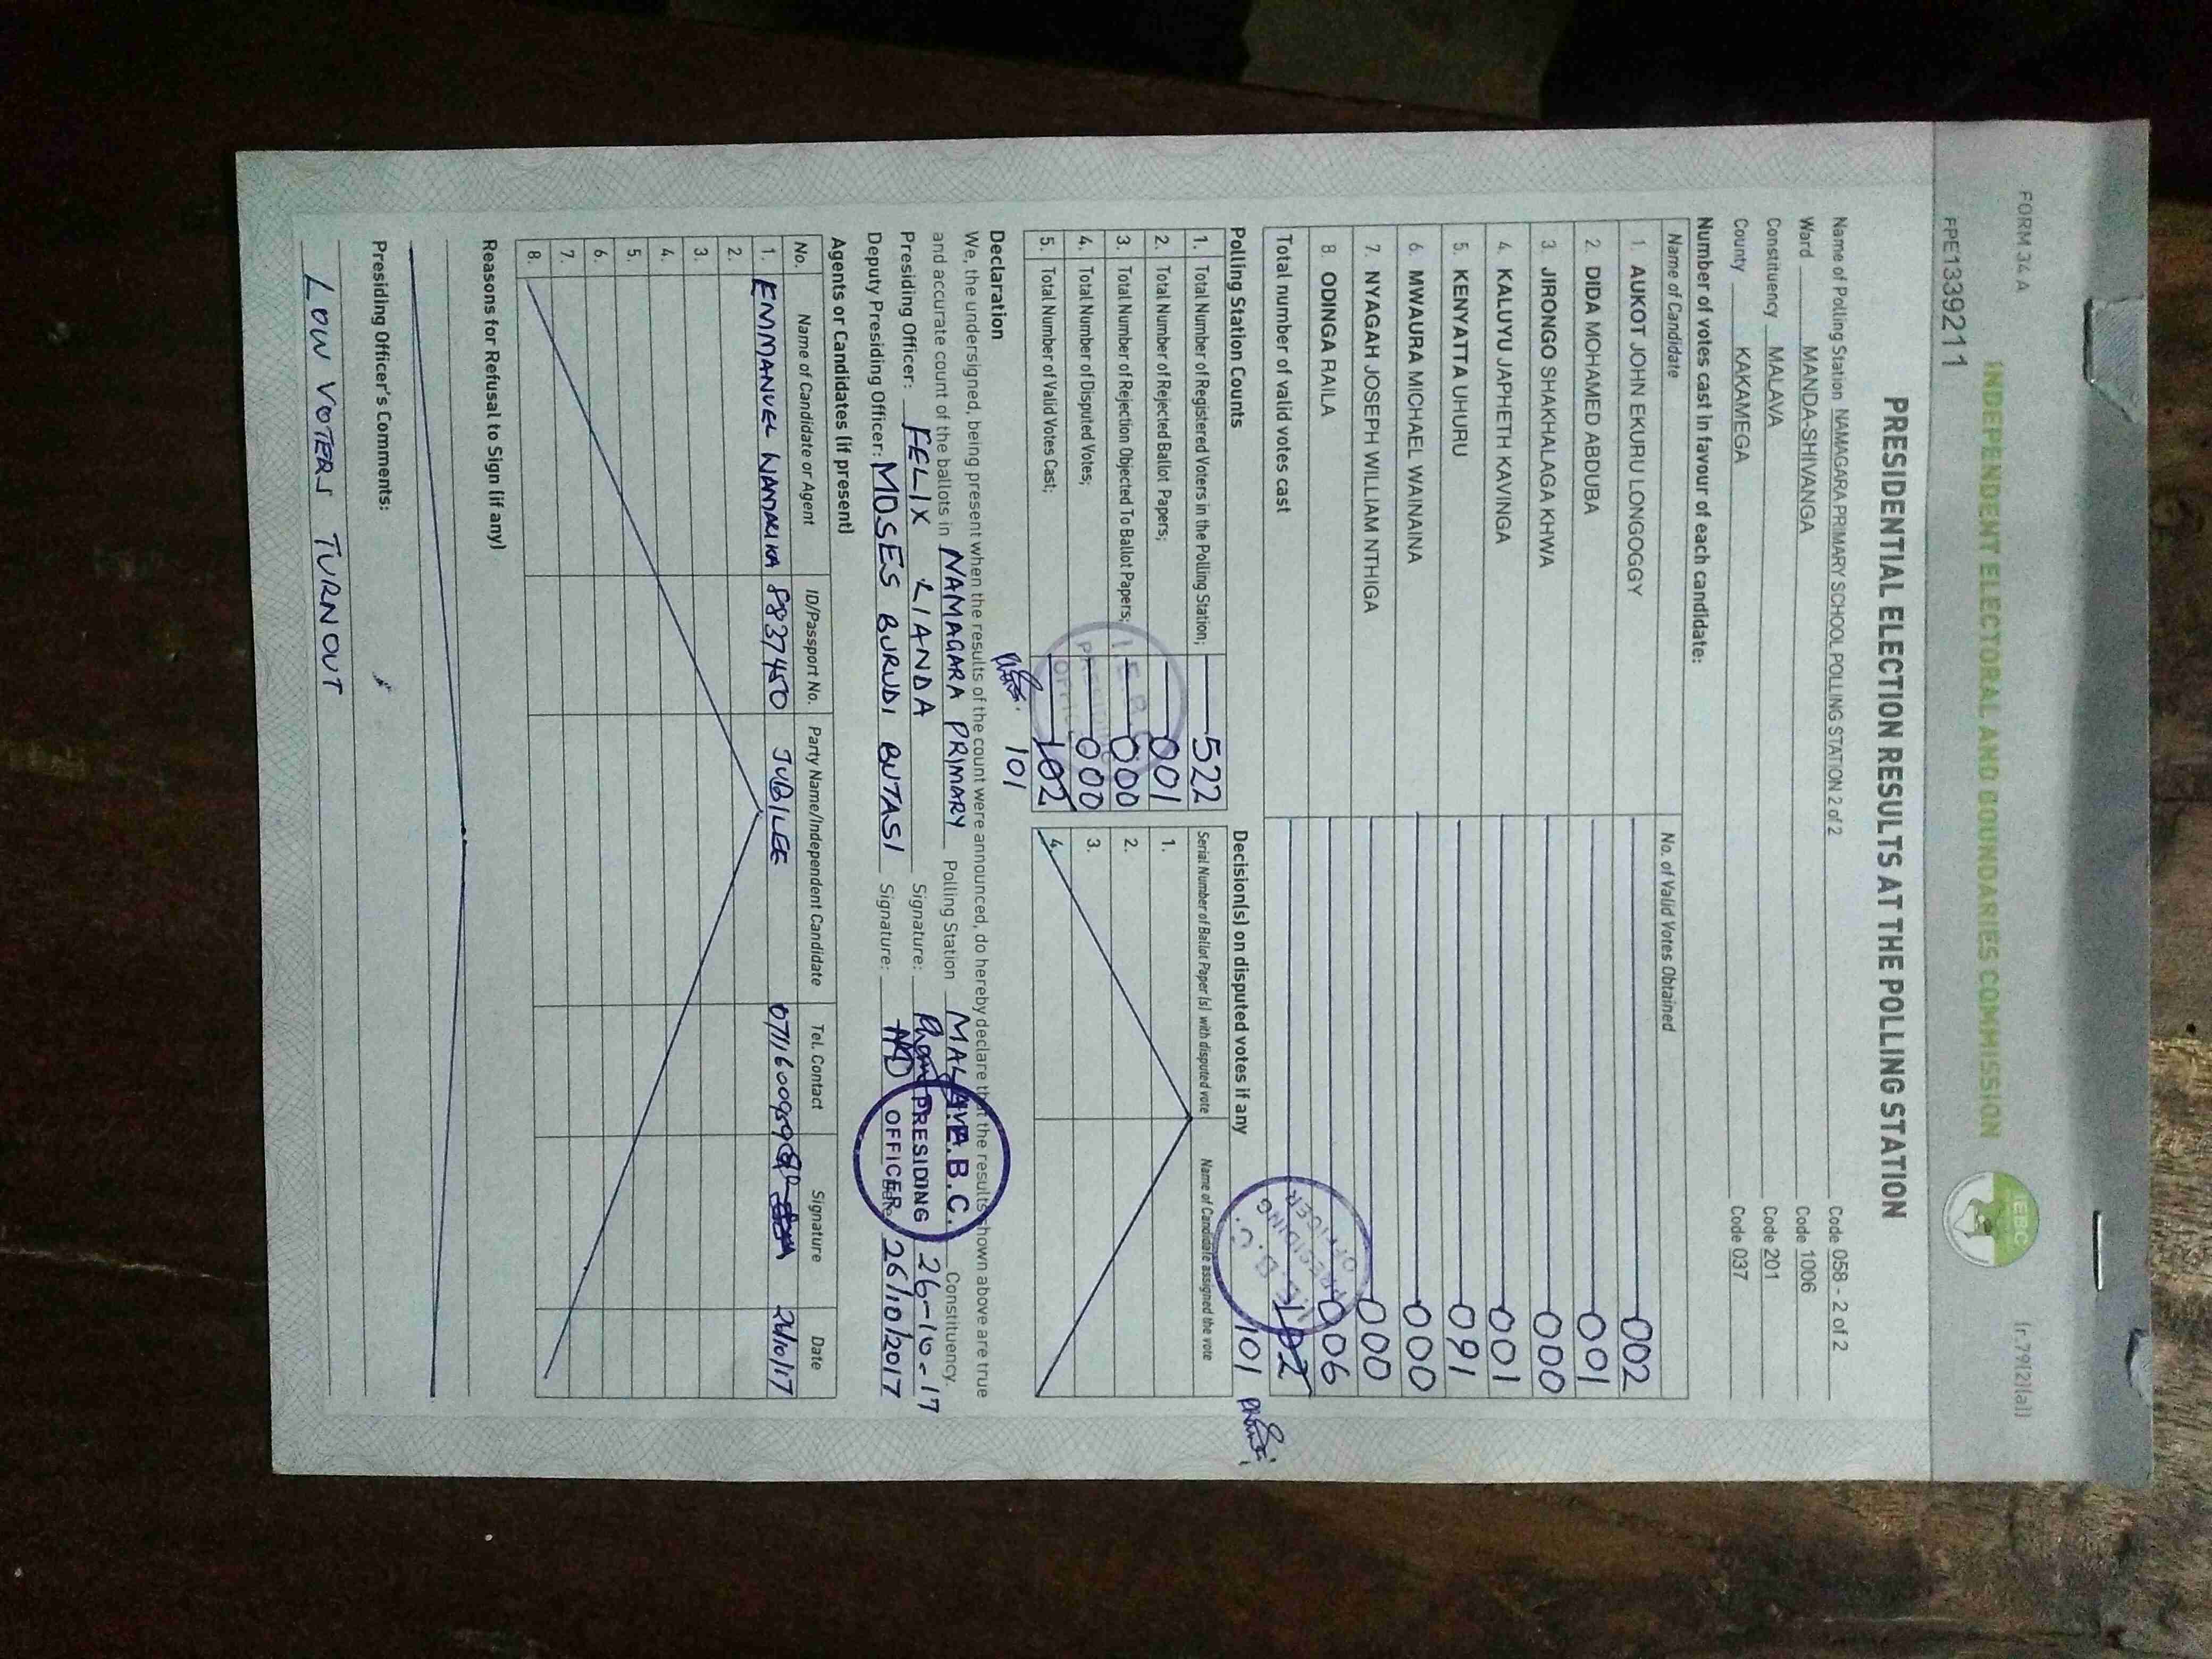 FORM 34 A
(r.79(2)(a))
INDEPENDENT ELECTORAL AND BOUNDARIES COMMISSION
IEBC
FPE1339211
PRESIDENTIAL ELECTION RESULTS AT THE POLLING STATION
Name of Polling Station NAMAGARA PRIMARY SCHOOL POLLING STATION 2 of 2 Code 058 - 2 of 2
Ward MANDA-SHIVANGA Code 1006
Constituency MALAVA Code 201
County KAKAMEGA Code 037
Number of votes cast in favour of each candidate:
Name of Candidate No. of Valid Votes Obtained
1. AUKOT JOHN EKURU LONGOGGY 002
2. DIDA MOHAMED ABDUBA 001
3. JIRONGO SHAKHALAGA KHWA 000
4. KALUYU JAPHETH KAVINGA 001
5. KENYATTA UHURU 091
6. MWAURA MICHAEL WAINAINA 000
7. NYAGAH JOSEPH WILLIAM NTHIGA 000
8. ODINGA RAILA 006
Total number of valid votes cast 102
101
I.E.B.C. PRESIDING OFFICER
Polling Station Counts
1. Total Number of Registered Voters in the Polling Station; 522
2. Total Number of Rejected Ballot Papers; 001
3. Total Number of Rejection Objected To Ballot Papers; 000
4. Total Number of Disputed Votes; 000
5. Total Number of Valid Votes Cast; 102
101
Decision(s) on disputed votes if any
Serial Number of Ballot Paper (s) with disputed vote Name of Candidate assigned the vote
1.
2.
3.
4.
Declaration
We, the undersigned, being present when the results of the count were announced, do hereby declare that the results shown above are true
and accurate count of the ballots in NAMAGARA PRIMARY Polling Station MALAVA Constituency.
Presiding Officer: FELIX LIANDA Signature: 26-10-17
Deputy Presiding Officer: MOSES BURUDI BUTASI Signature: Date 26/10/2017
I.E.B.C.
PRESIDING
OFFICER
Agents or Candidates (if present)
No. Name of Candidate or Agent ID/Passport No. Party Name/Independent Candidate Tel. Contact Signature Date
1. EMMANUEL 8837450 JUBILEE 26/10/17
2.
3.
4.
5.
6.
7.
8.
Reasons for Refusal to Sign (if any)
Presiding Officer's Comments:
LOW VOTERS TURNOUT